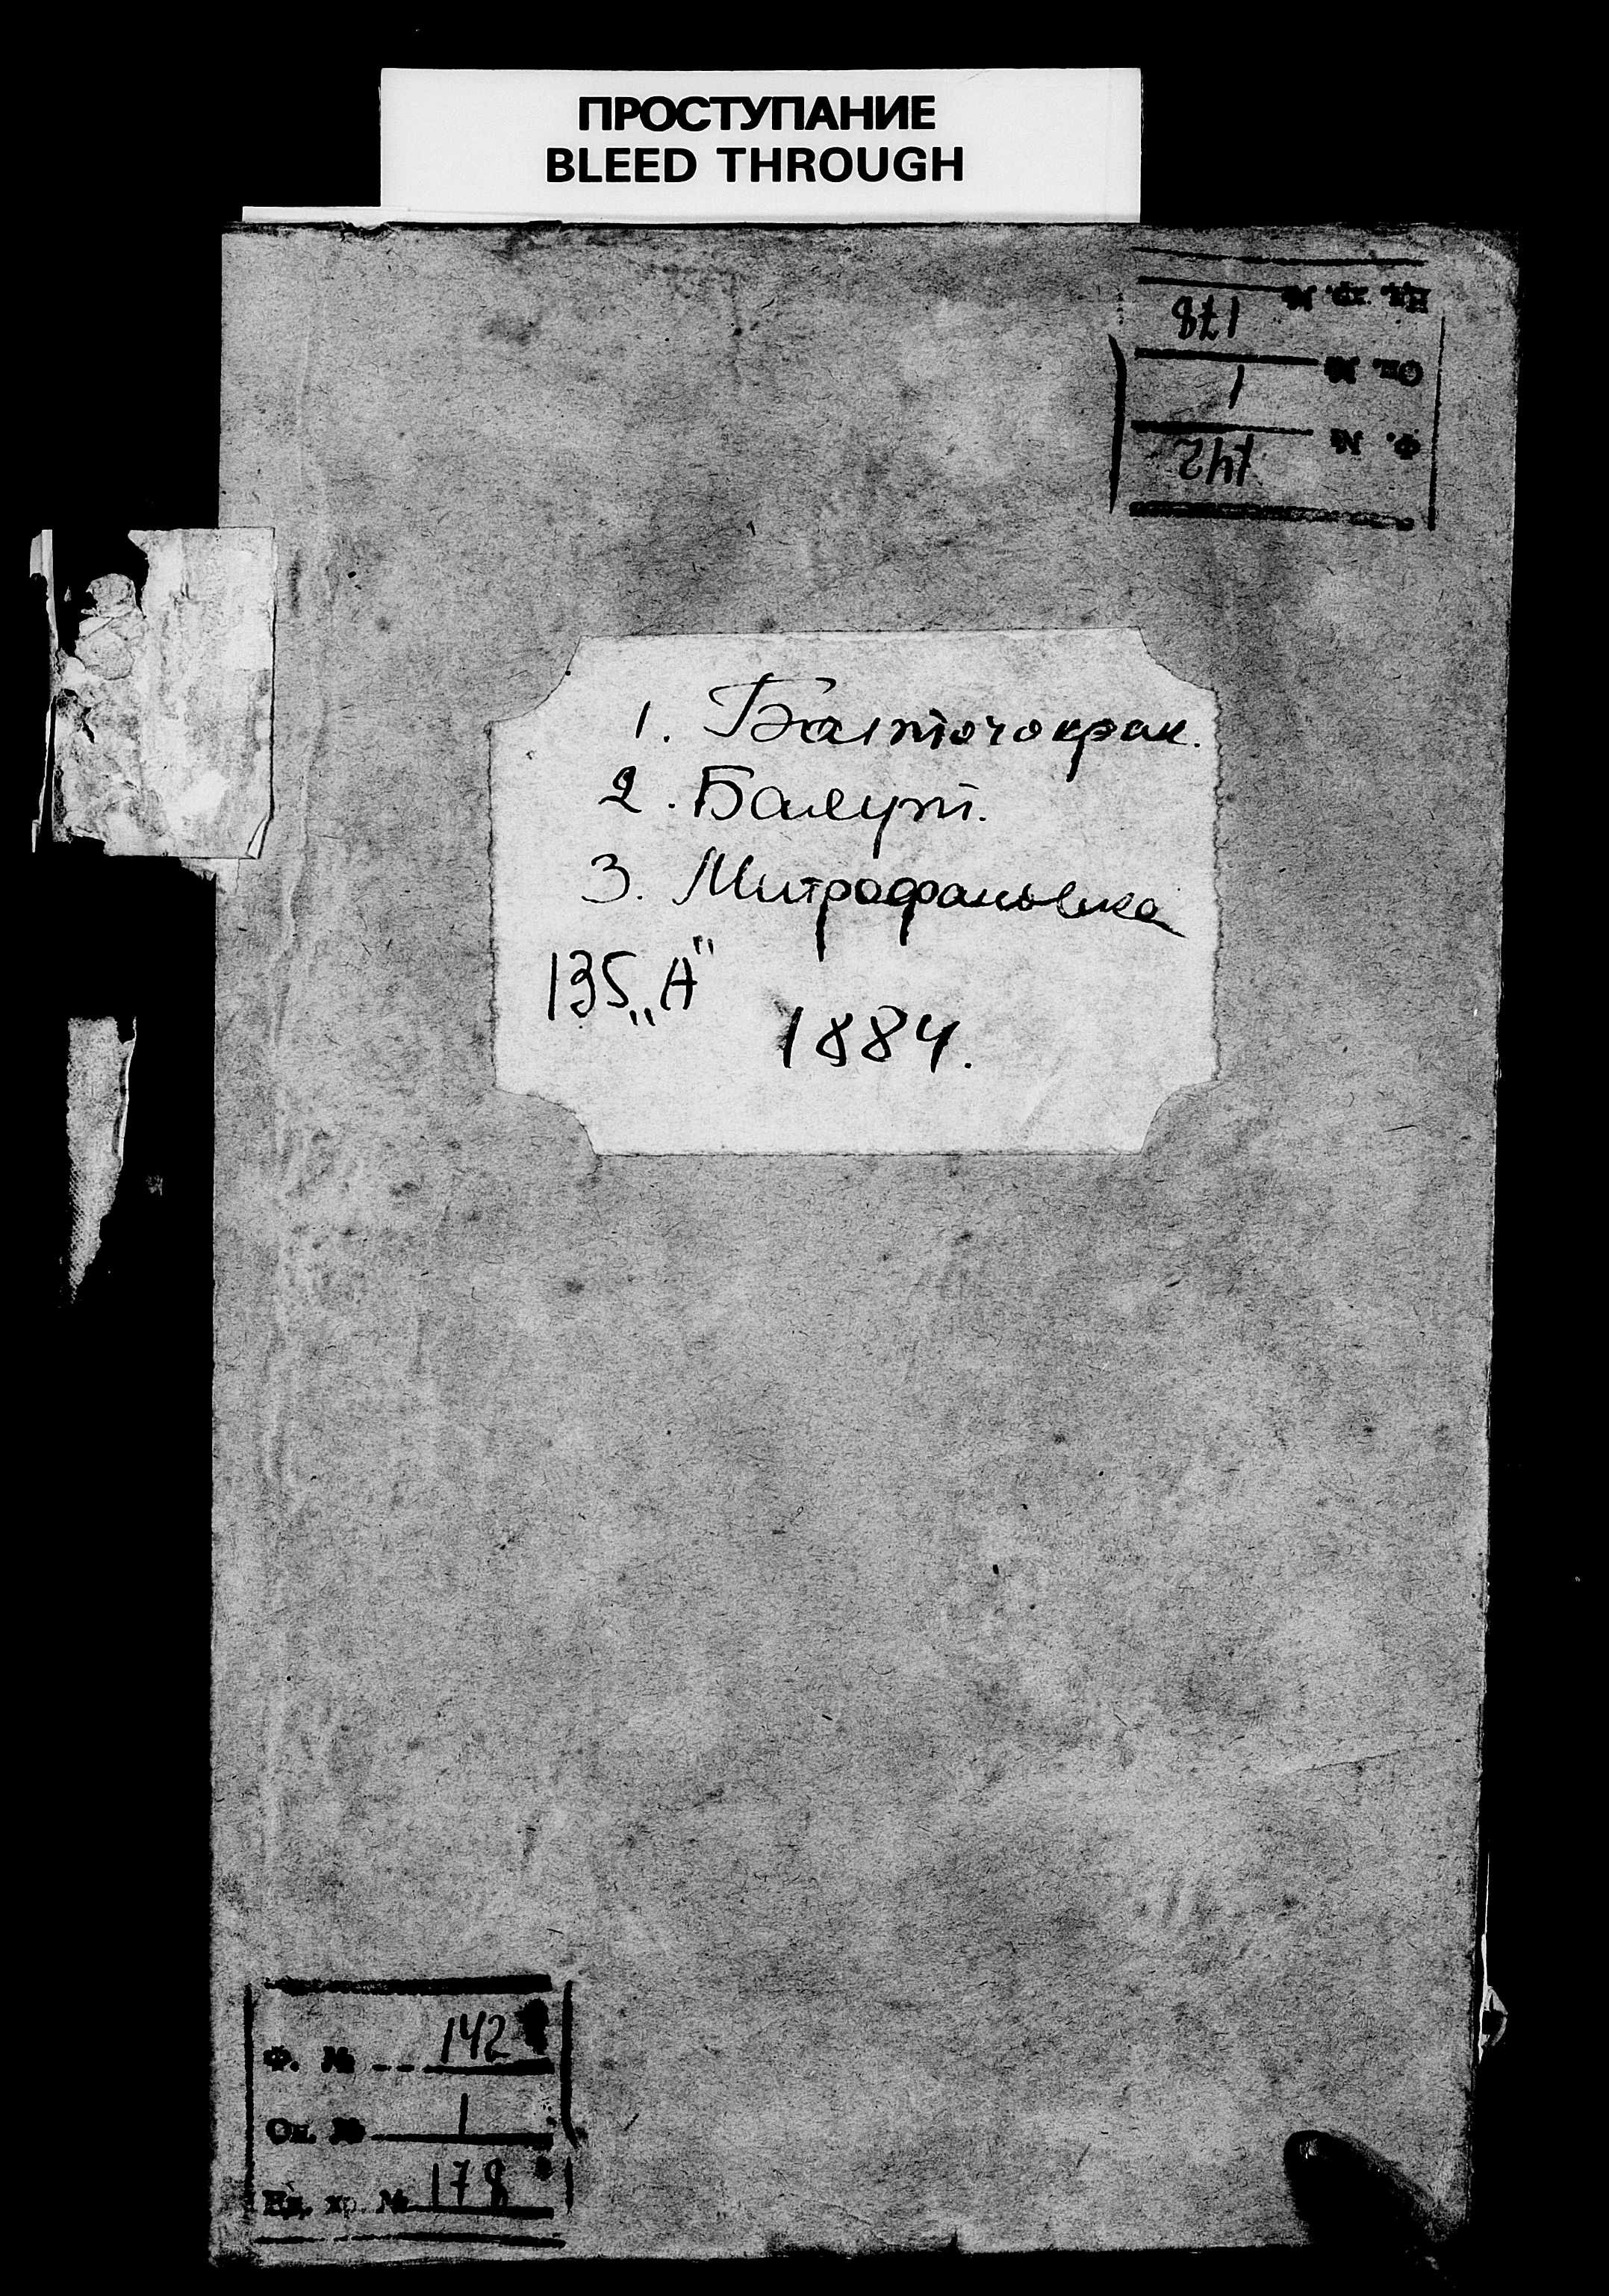 ПРОСТУПАНИЕ
BLEED THROUGH
Ед. хр. № 178
Оп. № 1
Ф. № 142
1. Балточокрак.
2. Балут.
3. Митрофановка
135 „А"
1884.
Ф. № 142
Оп. № 1
Ед. хр. № 178